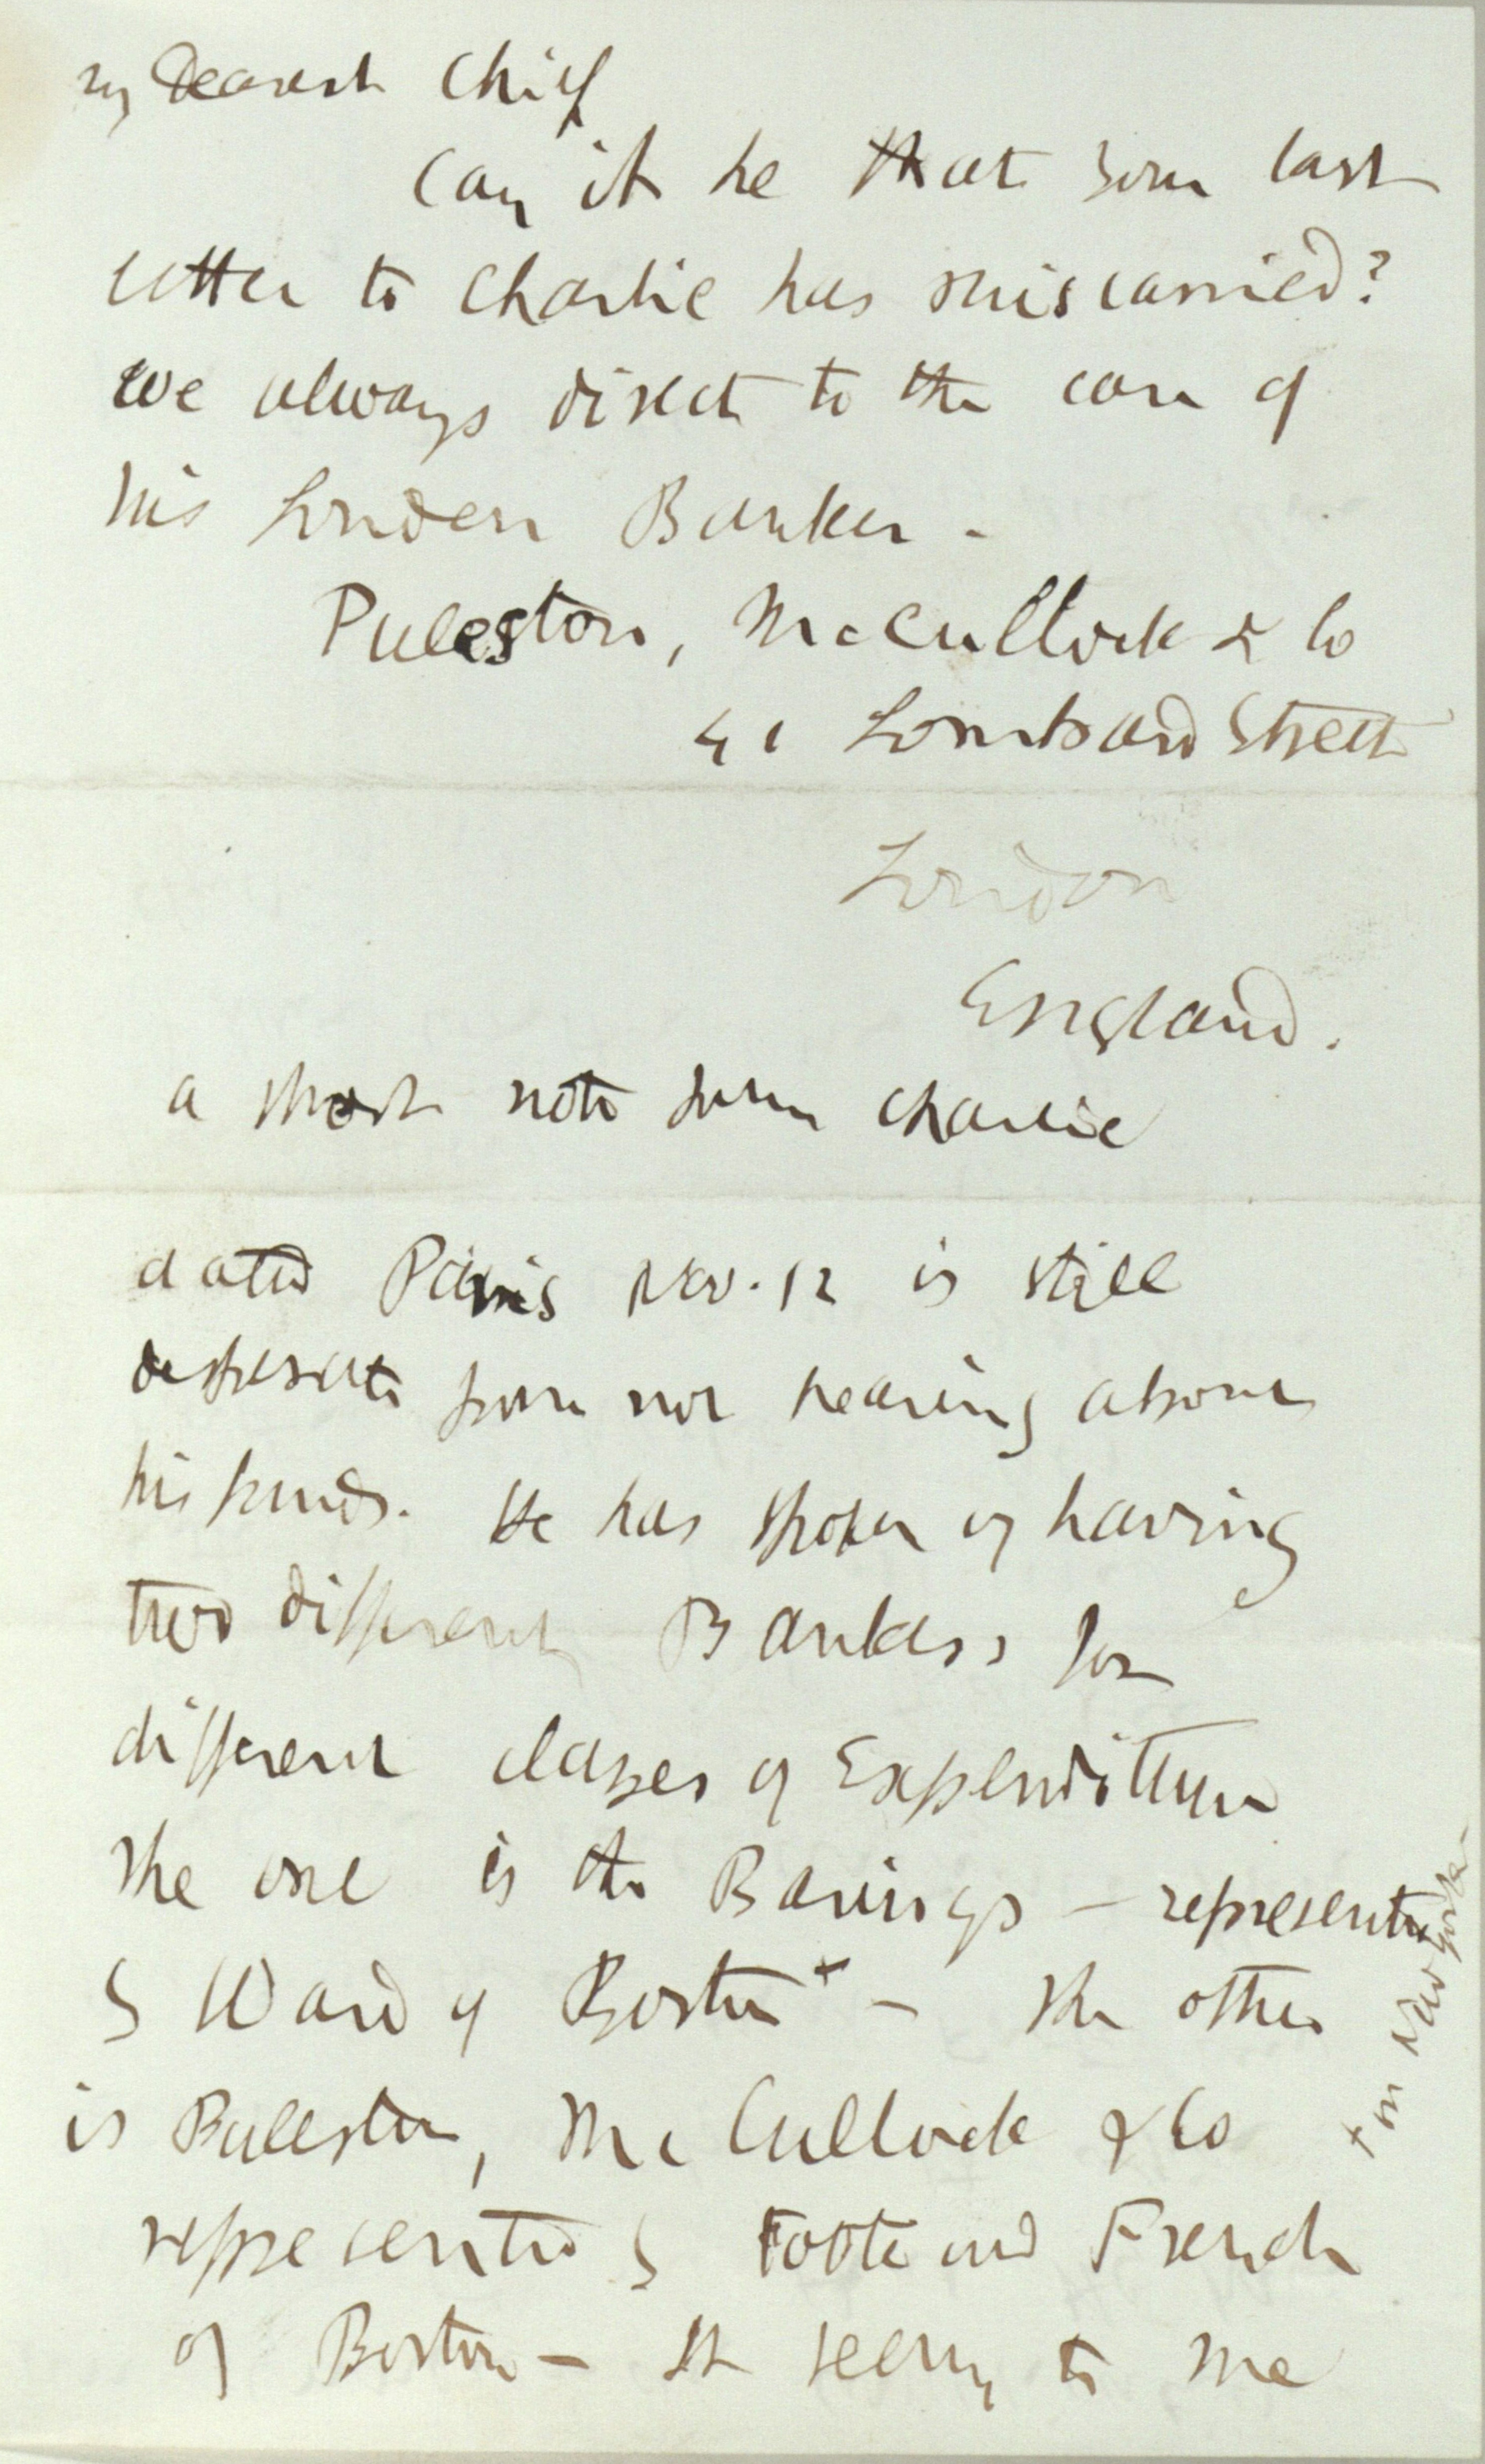 My Dearest Chief
Can it be that your last
letter to Charlie has miscarried?
We always direct to the care of
his London Banker -
Puleston, McCullock & Co
41 Lombard Street
London
England.
a short note from Charlie
dated Paris Nov. 12 is still
desperate from not hearing about
his funds. He has spoken of having
two different Bankers for
different classes of Expenditure
The one is the Barings - represented
by Ward of Boston + - The other
is Puleston, McCullock & Co
represented by Foote and French
of Boston - It seems to me
+ or New York -